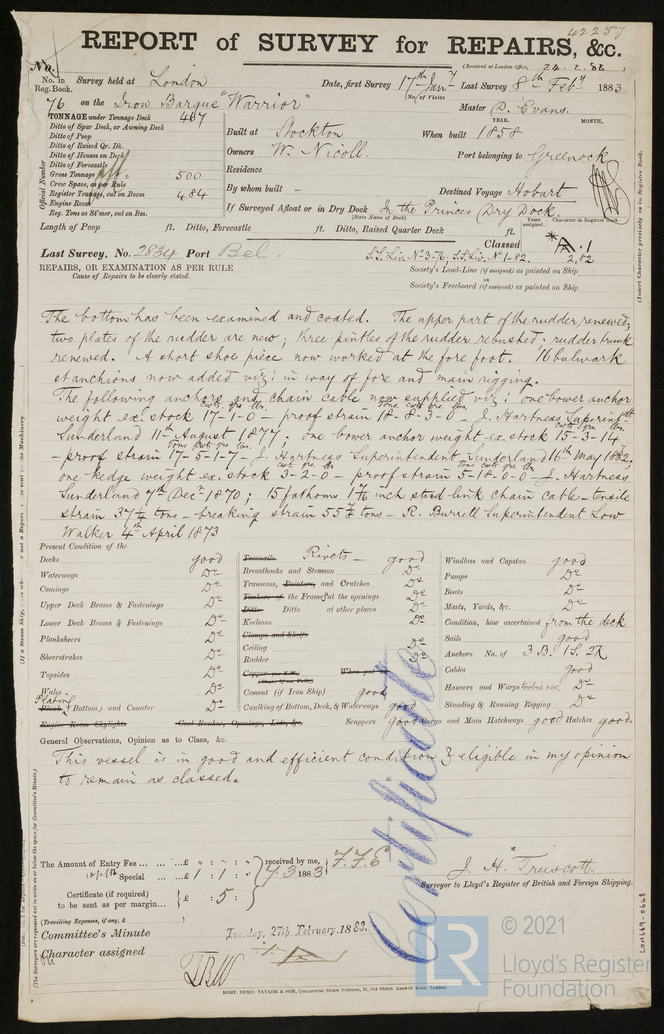 42257
REPORT of SURVEY for REPAIRS, &c.
(Received at London Office, 24.2.83)
No.
No. in Reg. Book. Survey held at London Date, first Survey 17th Jany Last Survey 8th Feby 1883
(No. of Visits
76 on the Iron Barque "Warrior" Master D. Evans.
TONNAGE under Tonnage Deck 467
YEAR. MONTH.
Ditto of Spar Deck, or Awning Deck
Built at Stockton When built 1858
Ditto of Poop
Ditto of Raised Qr. Dk.
Owners W. Nicoll. Port belonging to Greenock
Ditto of Houses on Deck
Ditto of Forecastle
Residence
Gross Tonnage 500
Crew Space, as per Rule
By whom built - Destined Voyage Hobart
Register Tonnage, cut on Beam 484
Engine Room
If Surveyed Afloat or in Dry Dock In the Princes Dry Dock.
(State Name of Dock)
Reg. Tons as St'mer, cut on Bm.
Official Number
Length of Poop ft. Ditto, Forecastle ft. Ditto, Raised Quarter Deck ft.
Years assigned. Character in Register Book
Last Survey, No. 2834 Port Bel. S.S. Liv. No 3-76; S.S. Liv. No 1-82. Classed A.1 2,82
REPAIRS, OR EXAMINATION AS PER RULE
Cause of Repairs to be clearly stated.
Society's Load-Line (if assigned) as painted on Ship
or
Society's Freeboard (if assigned) as painted on Ship
The bottom has been examined and coated. The upper part of the rudder renewed;
two plates of the rudder are new; three pintles of the rudder rebushed. rudder trunk
renewed. A short shoe piece now worked at the fore foot. 16 bulwark
stanchions now added viz: in way of fore and main rigging.
The following anchors and chain cable now supplied viz: one bower anchor
weight ex. stock 17-1-0 - proof strain 18-8-3-0 - J. Hartness Superindt
Sunderland 11th August 1877; one bower anchor weight ex. stock 15-3-14
- proof strain 17-5-1-7 - J. Hartness Superintendent Sunderland 16th May 1882,
one kedge weight ex. stock 3-2-0 - proof strain 5-18-0-0 - J. Hartness
Sunderland 7th Decr 1870; 15 fathoms inch stud-link chain cable - tensile
strain tons - breaking strain tons - R. Burrell Superintendent Low
Walker 4th April 1873
Present Condition of the
Decks good
Waterways Do
Comings Do
Upper Deck Beams & Fastenings Do
Lower Deck Beams & Fastenings Do
Planksheers Do
Sheerstrakes Do
Topsides Do
Wales Do
Plating (Bottom) and Counter Do
Engine Room Skylights Coal Bunker, Openings, Lids, &c.
Treenails Rivets - good
Breasthooks and Stemson Do
Transoms, Pointers, and Crutches Do
Timbers of the Frames at the openings Do
Ditto Ditto at other places Do
Keelsons Do
Clamps and Shelfs
Ceiling Do
Rudder Do
Cement (if Iron Ship) good
Caulking of Bottom, Decks, & Waterways good
Scuppers good Cargo and Main Hatchways good Hatches good.
Windlass and Capstan good
Pumps Do
Boats Do
Masts, Yards, &c. Do
Condition, how ascertained from the deck
Sails good
Anchors No. of 3 B. 1 S. 2 K
Cables good
Hawsers and Warps Do
Standing & Running Rigging Do
General Observations, Opinion as to Class, &c.
This vessel is in good and efficient condition & eligible in my opinion
to remain as classed.
Certificate
The Amount of Entry Fee £ " : " : "
Special £ 1 : 1 : -
received by me, F.F.E
7.3 1883
Certificate (if required) to be sent as per margin £ : 5 :
(Travelling Expenses, if any, £ )
J. H. Truscott.
Surveyor to Lloyd's Register of British and Foreign Shipping.
Committee's Minute Tuesday, 27th February, 1883.
Character assigned
ROBT. EDMD. TAYLOR & SON, Commercial Steam Printers, 19, Old Street, Goswell Road, London.
(Insert Character precisely as in Register Book.
(The Surveyors are requested not to write on or below the space for Committee's Minute.)
LON669-0668
LR
© 2021
Lloyd's Register
Foundation